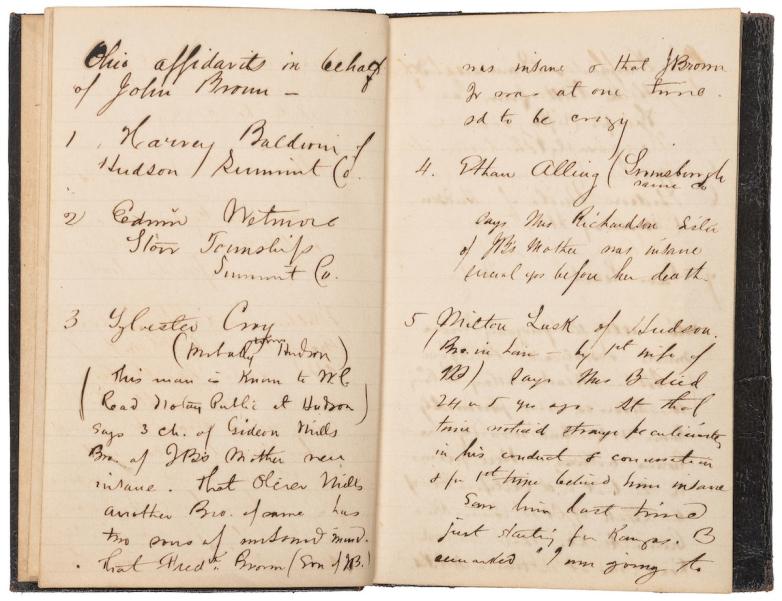 Ohio affidavits in behalf
of John Brown —
1 Harvey Baldwin of
Hudson Summit Co.
2 Edwin Wetmore
Stow Township
Summit Co.
3 Sylvester
(Probably Hudson)
(This man is known to W.C.
Read Notary Public at Hudson)
says 3 ch. of Gideon Mills
Bro. of JB's Mother were
insane. That Oliver Mills
another Bro. of same has
two sons of unsound mind.
That Fredk Brown (Son of JB.)
was insane & that J Brown
Jr was at one time
sd to be crazy
4. Ethan Alling (
same Co
says Mrs Richardson Sister
of JB's Mother was insane
several yrs before her death.
5 Milton Lusk of Hudson.
(Bro. in law — by 1st wife of
JB) Says Mrs B died
24 or 5 yrs ago. At that
time noticed strange peculiarities
in his conduct & conversation
& for 1st time believed him insane
Saw him last time
just starting for Kansas. B
remarked "I am going to